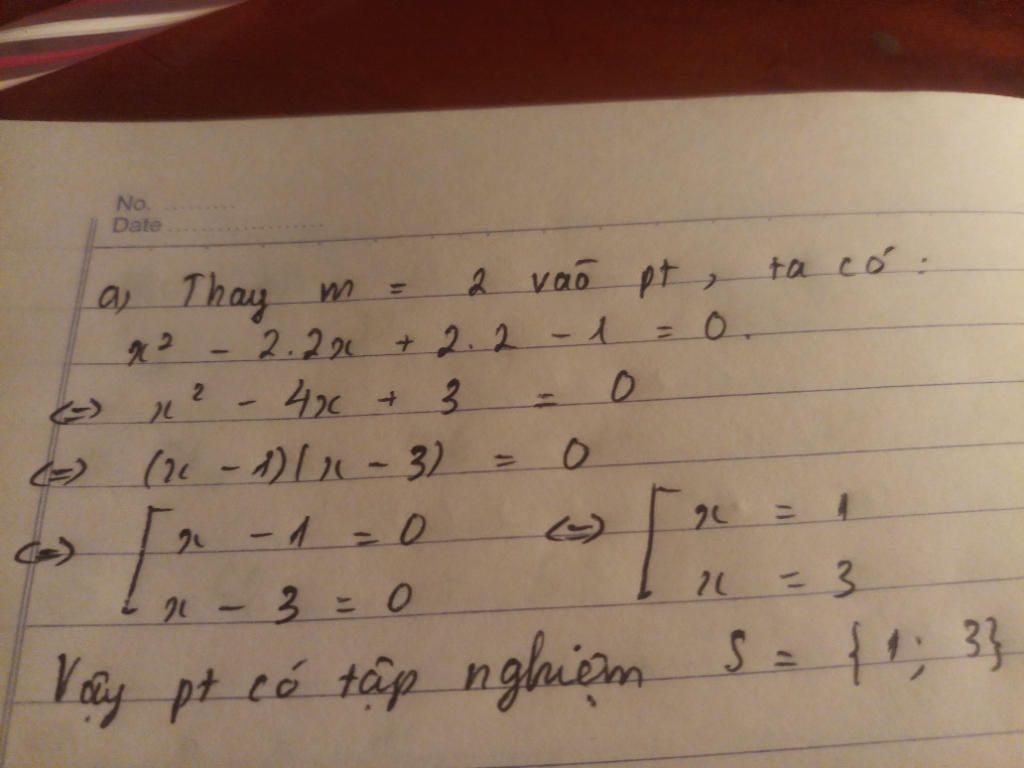 No. ..........
Date ......................
a) Thay m = 2 vào pt, ta có:
x² - 2.2x + 2.2 - 1 = 0.
<=> x² - 4x + 3 = 0
<=> (x - 1)(x - 3) = 0
<=> [ x - 1 = 0 <=> [ x = 1
x - 3 = 0 x = 3
Vậy pt có tập nghiệm S = {1; 3}